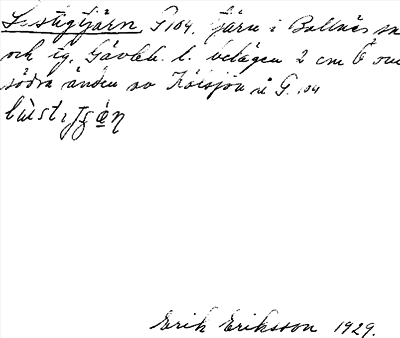 L. stigtjärn G 104. tjärn i Bollnäs sn
och tg. Gävleb. l. belägen 2 cm Ö om
södra änden av Kölsjön å G. 104
Erik Eriksson 1929.